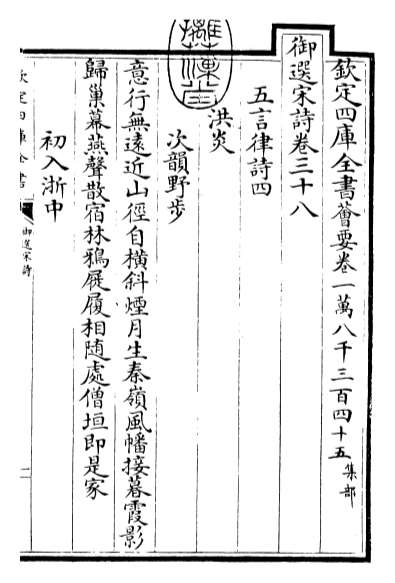 欽定四庫全書薈要卷一萬八千三百四十五 集部
御選宋詩卷三十八
五言律詩四
洪炎
次韻野步
意行無遠近山徑自橫斜煙月生秦嶺風幡接暮霞影
歸巢幕燕聲散宿林鴉屐履相隨處僧垣即是家
初入浙中
欽定四庫全書
御選宋詩